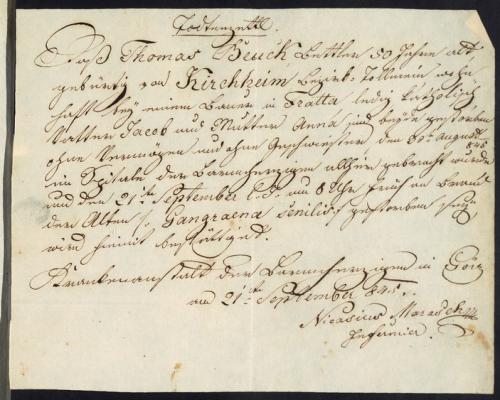 Todtenzettl.
Daß Thomas Beuck Bettler 50 Jahre alt
gebürtig von Kirchheim Bezirk Tollmein wohn
haft bey einem Bauer in Fratta ledig katholisch
Vatter Jacob und Mutter Anna sind beyde gestorben
ohne Vermögen und ohne Geschwister, den 30ten August 845
im Spitale der Barmherzigen allhier gebracht wurde
und den 21ten September l. J. um 8 Uhr früh an Brand
der Alten /: Gangraena senilis :/ gestorben sey,
wird hiemit bestättiget.
Krankenanstalt der Barmherzigen in Görz
am 21ten September 845.
Nicasius
Infermier.